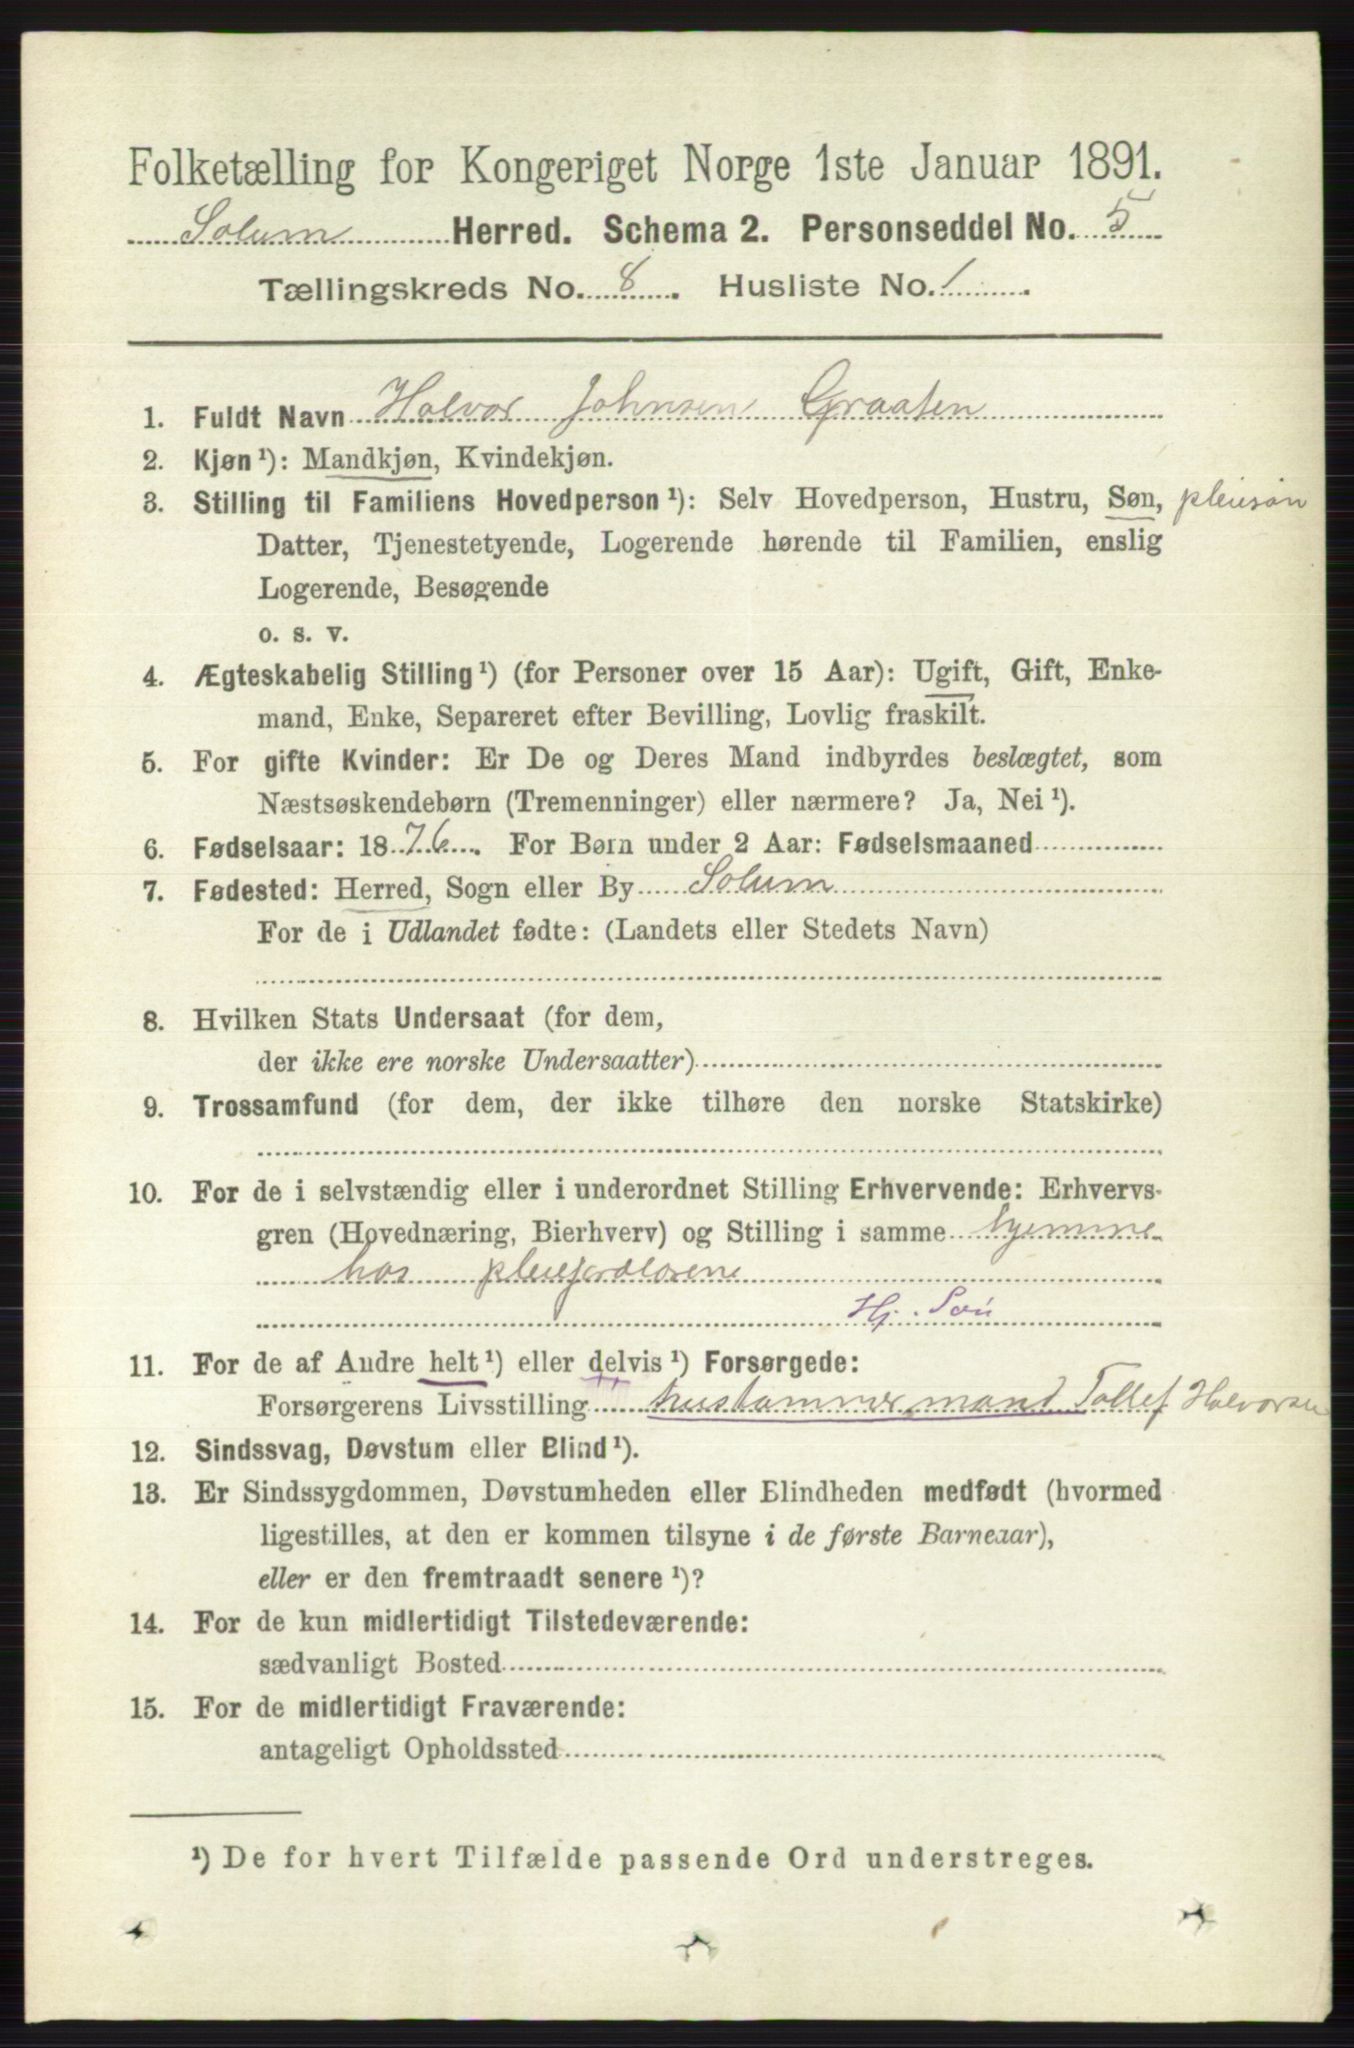 Folketælling for Kongeriget Norge 1ste Januar 1891.
Solum Herred. Schema 2. Personseddel No. 5
Tællingskreds No. 8. Husliste No. 1.
1. Fuldt Navn Halvor Johnsen Graaten
2. Kjøn¹): Mandkjøn, Kvindekjøn.
3. Stilling til Familiens Hovedperson¹): Selv Hovedperson, Hustru, Søn, pleiesøn
Datter, Tjenestetyende, Logerende hørende til Familien, enslig
Logerende, Besøgende
o. s. v.
4. Ægteskabelig Stilling¹) (for Personer over 15 Aar): Ugift, Gift, Enke-
mand, Enke, Separeret efter Bevilling, Lovlig fraskilt.
5. For gifte Kvinder: Er De og Deres Mand indbyrdes beslægtet, som
Næstsøskendebørn (Tremenninger) eller nærmere? Ja, Nei¹).
6. Fødselsaar: 1876. For Børn under 2 Aar: Fødselsmaaned
7. Fødested: Herred, Sogn eller By Solum
For de i Udlandet fødte: (Landets eller Stedets Navn)
8. Hvilken Stats Undersaat (for dem,
der ikke ere norske Undersaatter)
9. Trossamfund (for dem, der ikke tilhøre den norske Statskirke)
10. For de i selvstændig eller i underordnet Stilling Erhvervende: Erhvervs-
gren (Hovednæring, Bierhverv) og Stilling i samme hjemme
hos pleieforældrene
Hj. Søn
11. For de af Andre helt¹) eller delvis¹) Forsørgede:
Forsørgerens Livsstilling hustømmermand Tollef Halvorsen
12. Sindssvag, Døvstum eller Blind¹).
13. Er Sindssygdommen, Døvstumheden eller Blindheden medfødt (hvormed
ligestilles, at den er kommen tilsyne i de første Barneaar),
eller er den fremtraadt senere¹)?
14. For de kun midlertidigt Tilstedeværende:
sædvanligt Bosted
15. For de midlertidigt Fraværende:
antageligt Opholdssted
¹) De for hvert Tilfælde passende Ord understreges.